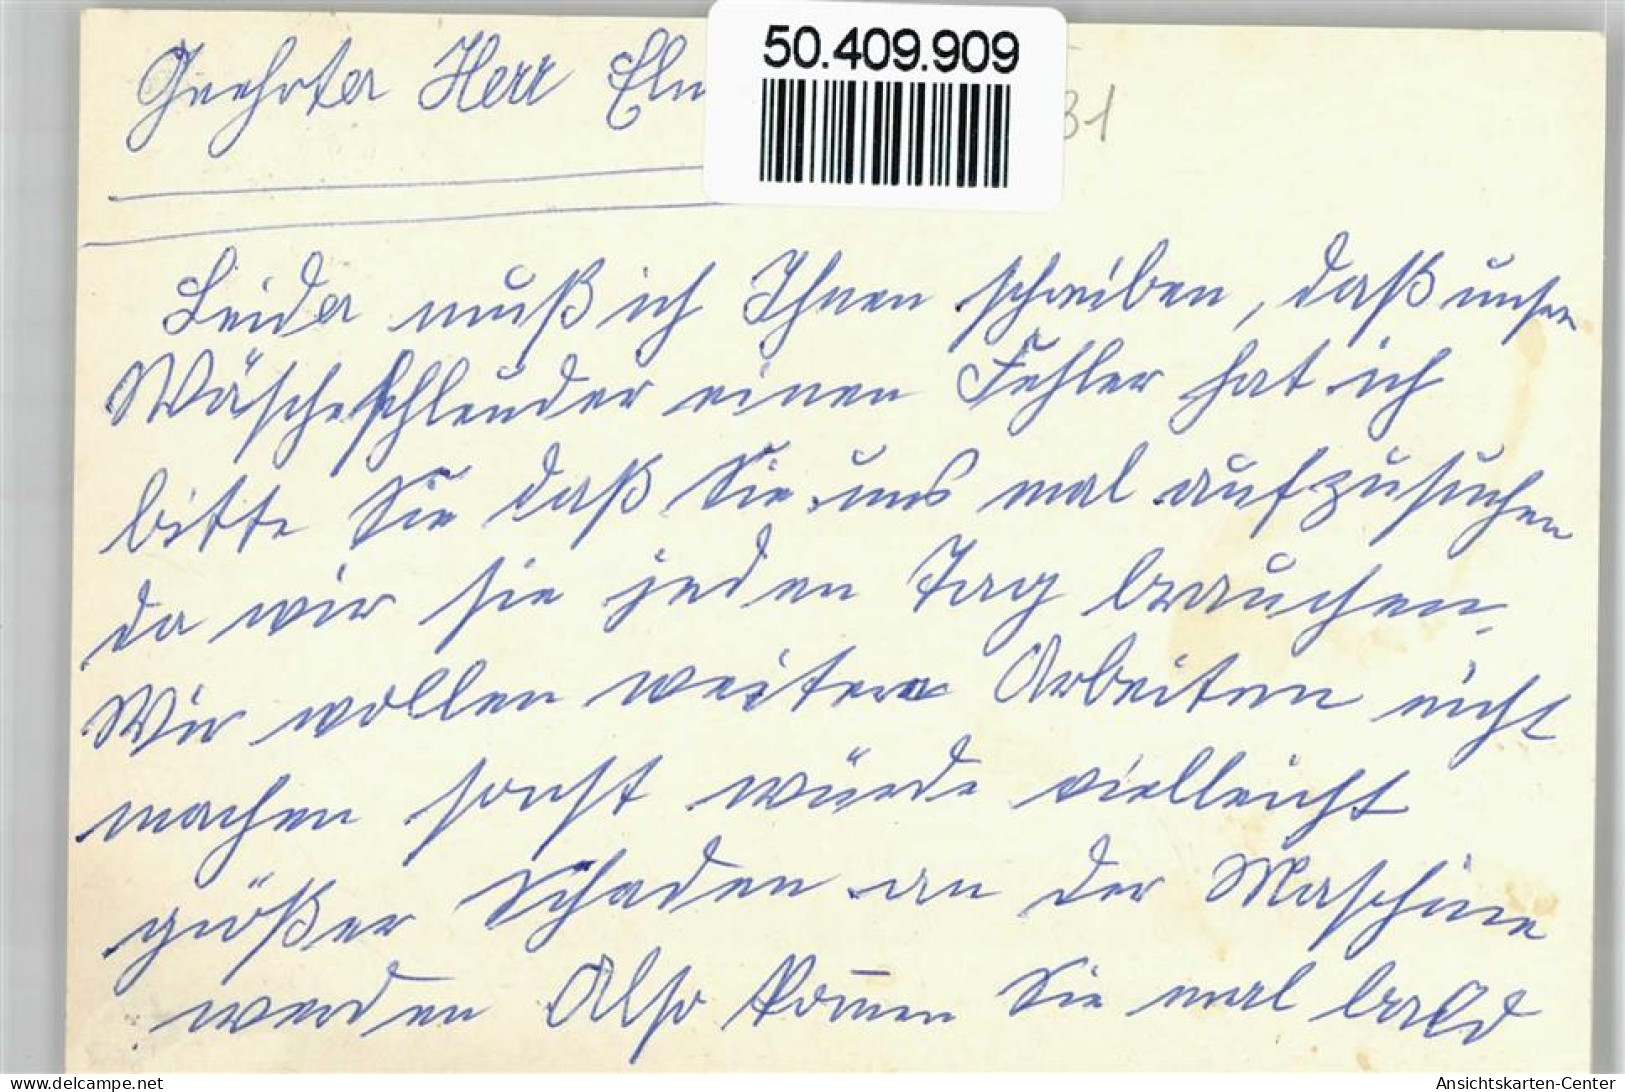 50.409.909
Geehrter Herr
31
Leider muß ich Ihnen schreiben, daß unsere
Wäscheschleuder einen Fehler hat ich
bitte Sie daß Sie uns mal aufzusuchen
da wir sie jeden Tag brauchen.
Wir wollen weitere Arbeiten nicht
machen sonst würde vielleicht
größer Schaden an der Maschine
werden Also kom̄en Sie mal bald
www.delcampe.net
Ansichtskarten-Center